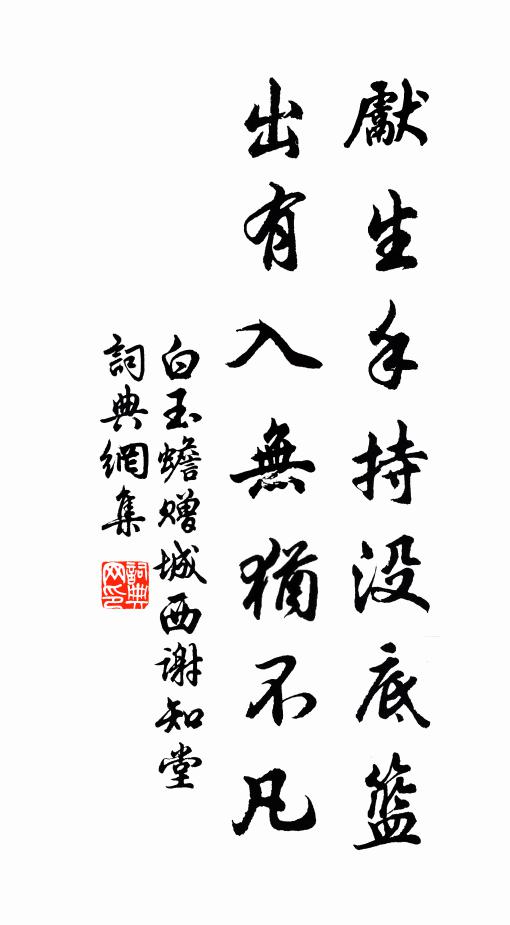 獻生手持没底籃
出有入無猶不凡
白玉蟾赠城西谢知堂
詞典網集
詞典网印